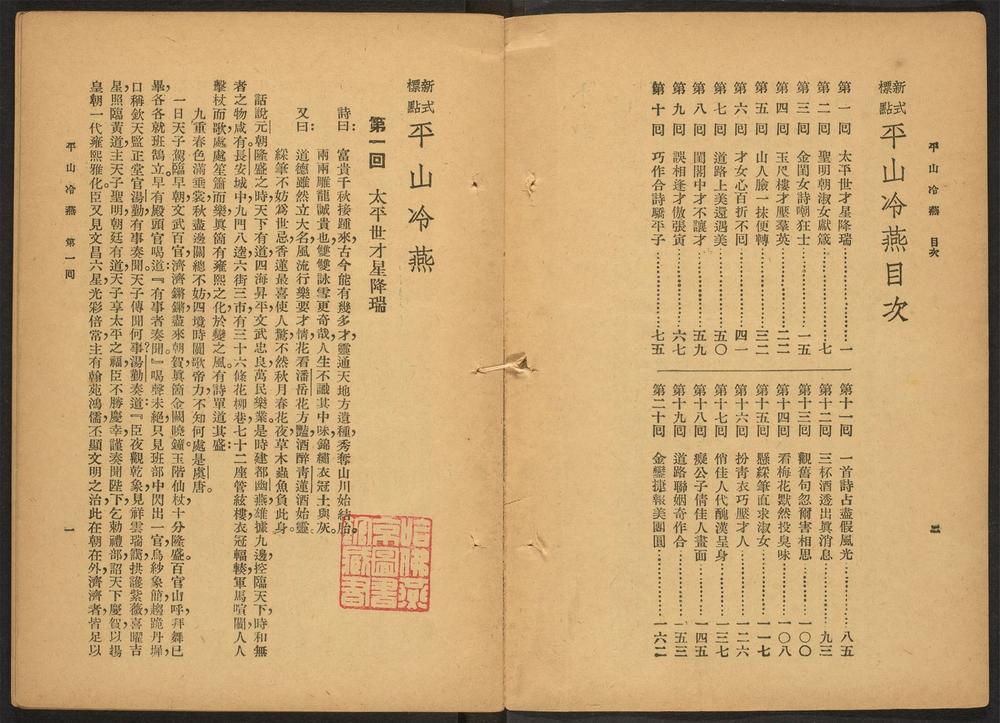 平山冷燕 目次
新式標點 平山冷燕目次
第一回 太平世才星降瑞……一
第二回 聖明朝淑女獻箴……七
第三回 金閨女詩嘲狂士……一五
第四回 玉尺樓才壓羣英……二二
第五回 山人臉一抹便轉……三二
第六回 才女心百折不回……四一
第七回 道路上美還遇美……五〇
第八回 閨閣中才不讓才……五九
第九回 誤相逢才傲張寅……六七
第十回 巧作合詩驕平子……七五
第十一回 一首詩占盡假風光……八五
第十二回 三杯酒透出眞消息……九三
第十三回 觀舊句忽爾害相思……一〇〇
第十四回 看梅花默然投臭味……一〇八
第十五回 懸綵筆直求淑女……一一七
第十六回 扮靑衣巧壓才人……一二六
第十七回 俏佳人代醜漢呈身……一三七
第十八回 癡公子倩佳人畫面……一四五
第十九回 道路聯姻奇作合……一五三
第二十回 金鑾捷報美團圓……一六二
二
新式標點 平山冷燕
第一回 太平世才星降瑞
詩曰: 富貴千秋接踵來,古今能有幾多才,靈通天地方遺種,秀奪山川始結胎。
兩兩雕龍誠貴也,雙雙詠雪更奇哉,人生不識其中味,錦繡衣冠土與灰。
又曰: 道德雖然立大名,風流行樂要才情,花看潘岳花方豔,酒醉青蓮酒始靈。
綵筆不妨爲世忌,香蓮最喜使人驚,不然秋月春花夜,草木蟲魚負此身。
話說元朝隆盛之時,天下有道,四海昇平,文武忠良,萬民樂業。是時建都幽燕,雄據九邊,控臨天下,時和無
者之物咸有。長安城中,九門八逵,六街三市,有三十六條花柳巷,七十二座管絃樓,衣冠輻輳,軍馬喧闐,人人
擊杖而歌,處處笙簫而樂,眞箇有雍熙之化,於變之風。有詩單道其盛:
九重春色滿垂裳,秋盡邊關總不妨,四境時聞歌帝力,不知何處是虞唐。
一日天子駕臨早朝,文武百官,濟濟鏘鏘,盡來朝賀,眞箇金闕曉鐘,玉階仙杖,十分隆盛。百官山呼拜舞已
畢,各各就班鵠立,早有殿頭官喝道:『有事者奏聞。』喝聲未絕,只見班部中閃出一官,烏紗象簡,趨跪丹墀,
口稱欽天監正堂官湯勤有事奏聞。天子傳問何事?湯勤奏道:『臣夜觀乾象,見祥雲瑞靄,拱護紫薇,喜曜吉
星,照臨黃道,主天子聖明,朝廷有道,天子享太平之福,臣不勝慶幸,謹奏聞陛下,乞勅禮部,詔天下慶賀,以揚
皇朝一代雍熙雅化。臣又見文昌六星,光彩倍常,主有翰苑鴻儒,丕顯文明之治,此在朝在外,濟濟者皆足以
平山冷燕 第一回
一
哈佛燕京圖書館藏書